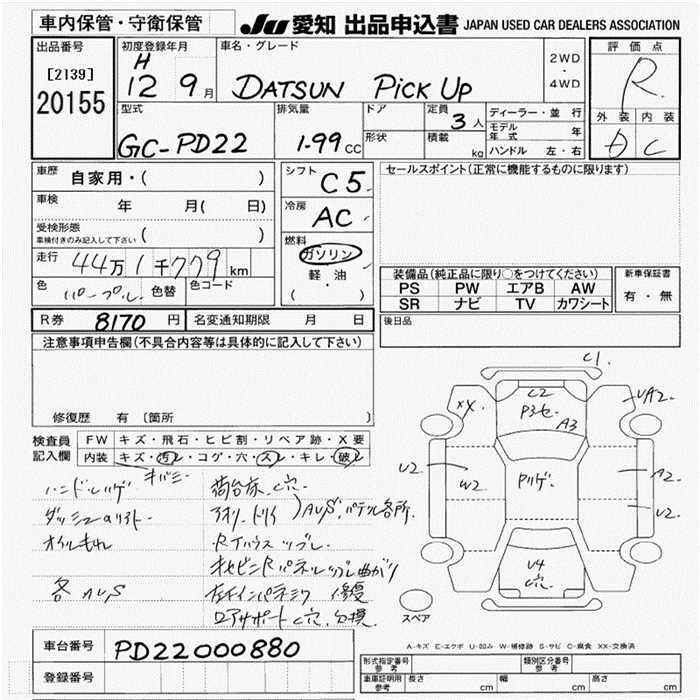 車内保管・守衛保管 JU 愛知 出品申込書 JAPAN USED CAR DEALERS ASSOCIATION
出品番号 初度登録年月 車名・グレード 評価点
[2139] H 2WD
20155 12 9月 DATSUN PICK UP ・ R
4WD
型式 排気量 ドア 定員 3人 ディーラー・並行 外装 内装
モデル年式 年
GC-PD22 1.99cc 形状 積載 kg ハンドル 左・右 D C
車歴 自家用・( ) シフト C5 セールスポイント(正常に機能するものに限ります)
車検 年 月( 日) 冷房 AC
受検形態
車検付きのみ記入して下さい ( )
燃料
走行 44万1千779km ガソリン
軽・油
色 パープル 色替 色コード ( )
装備品(純正品に限り○をつけてください) 新車保証書
PS PW エアB AW 有・無
SR ナビ TV カワシート
R券 8170円 名変通知期限 月 日 後日品
注意事項申告欄(不具合内容等は具体的に記入して下さい)
修復歴 有〔箇所
C1.
XX C2 UA2.
P3セ A3
U2 W2 Pリゲ. A2
U2
U4
C穴
スペア
検査員記入欄 FW キズ・飛石・ヒビ割・リペア跡・X要
内装 キズ・汚レ・コゲ・穴・スレ・キレ・破レ
ハンドル 荷台床 C穴
オイルもれ
各 AUS
ロアサポート C穴
A-キズ E-エクボ U-凹み W-補修跡 S-サビ C-腐食 XX-交換済
車台番号 PD22000880
登録番号
形式指定番号 参考 類別区分番号 参考
車庫証明用 参考 長さ cm 幅 cm 高さ cm